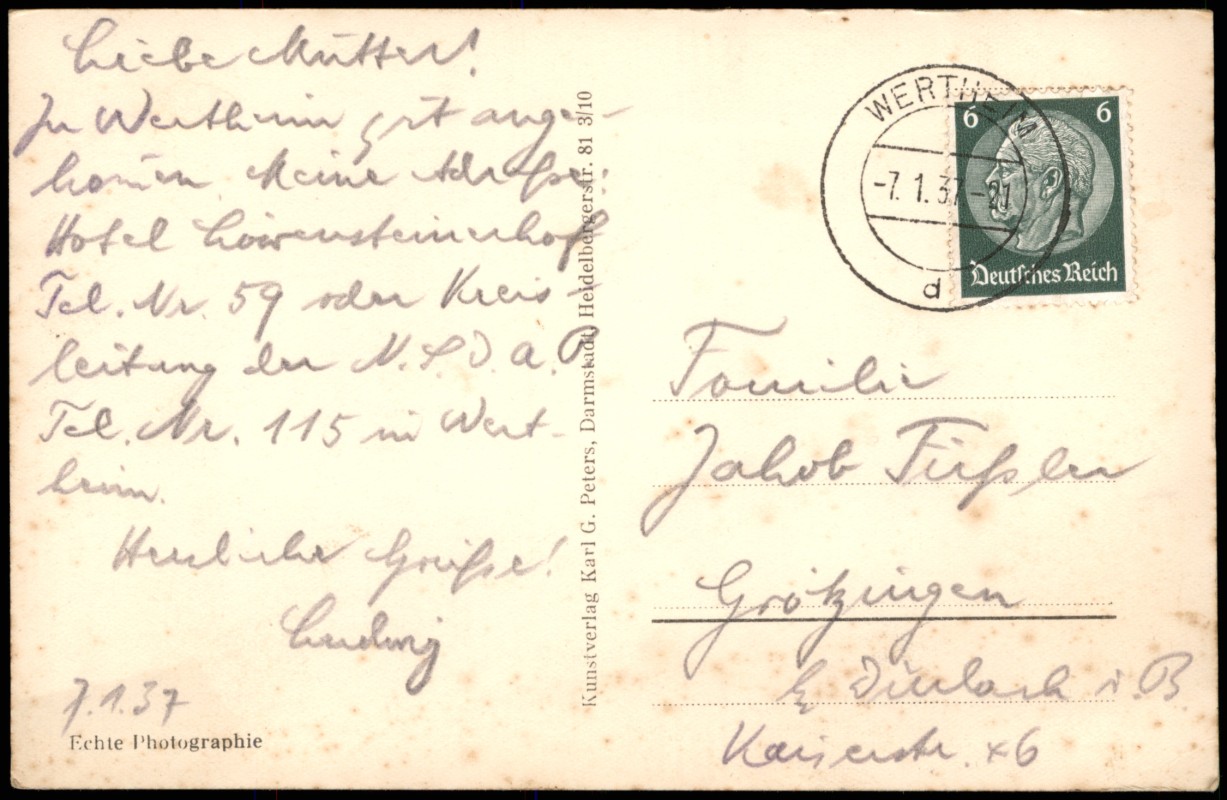 Liebe Mutter!
In Wertheim gut ange-
kom̄en. Meine Adreße:
Hotel Löwensteinerhof
Tel. Nr. 59 oder Kreis-
leitung der N.S.D.A.P.
Tel. Nr. 115 in Wert-
heim.
Herzliche Grüße!
Ludwig
7.1.37
Echte Photographie
Kunstverlag Karl G. Peters, Darmstadt, Heidelbergerstr. 81 3/10
WERTHEIM
-7.1.37-21
d
6 6
Deutsches Reich
Familie
Jakob Füßler
Grötzingen
b/ Durlach i. B.
Kaiserstr. 46